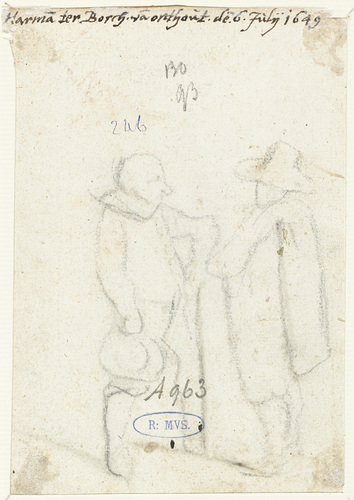 Harmã ter Borch. vã onthoüt. de 6. Julÿ 1649
130
93
246
A 963
R: MVS.